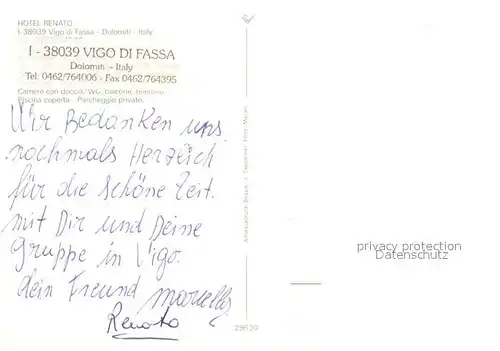 HOTEL RENATO
I - 38039 Vigo di Fassa - Dolomiti - Italy
I - 38039 VIGO DI FASSA
Dolomiti - Italy
Tel. 0462/764006 - Fax 0462/764395
Camere con doccia/WC, balcone,
Piscina coperta - Parcheggio privato.
Wir Bedanken uns
nochmals Herzlich
für die schöne Zeit.
mit Dir und Deine
Gruppe in Vigo.
dein Freund
Renato
29630
privacy protection
Datenschutz